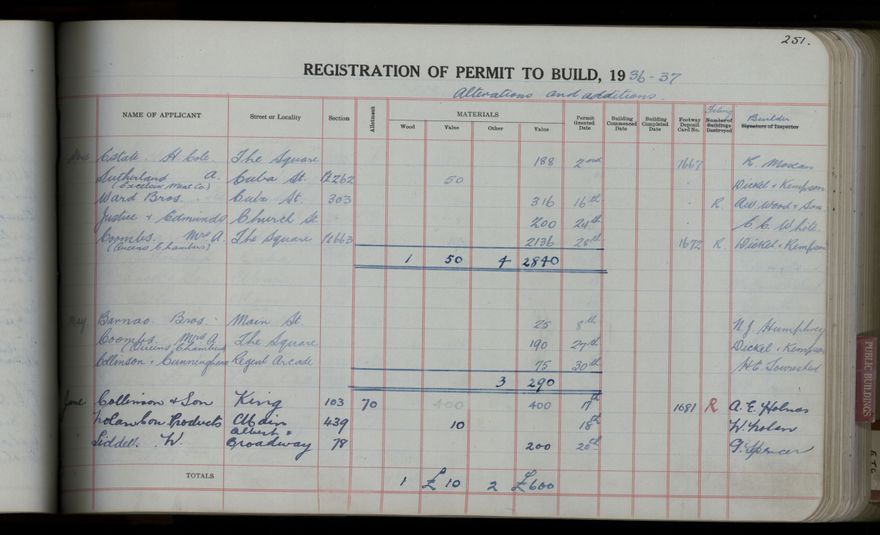 251.
REGISTRATION OF PERMIT TO BUILD, 1936-37
Alterations and additions
NAME OF APPLICANT Street or Locality Section Allotment MATERIALS Wood Value Other Value Permit Granted Date Building Commenced Date Building Completed Date Footway Deposit Card No. Number of Buildings Destroyed Builder Signature of Inspector
Estate H Cole. The Square 188 2nd 1667
Sutherland A. Cuba St. 50 Dickel & Kempson
(Excelsior Meat Co)
Ward Bros. Cuba St. 303 316 16th R. A.W. Wood & Son
Justice & Edmunds Church St 200 24th C.C. White
Coombs. Mrs A. The Square 2136 28th 1672 R Dickel & Kempson
(Queens Chambers)
1 50 4 2840
May Barnao Bros. Main St. 25 8th N.J. Humphrey
Coombs Mrs A. The Square 190 27th Dickel & Kempson
(Queens Chambers)
Collinson & Cunninghame Regent Arcade 75 30th H.E. Townshend
3 290
June Collinson & Son King 103 70 400 400 17th 1681 R A.E. Holmes
Nolan Con Products 439 10 18th W. Nolan
Liddell. W. Albert & Broadway 78 200 26th G. Spencer
TOTALS 1 £10 2 £600
PUBLIC BUILDINGS